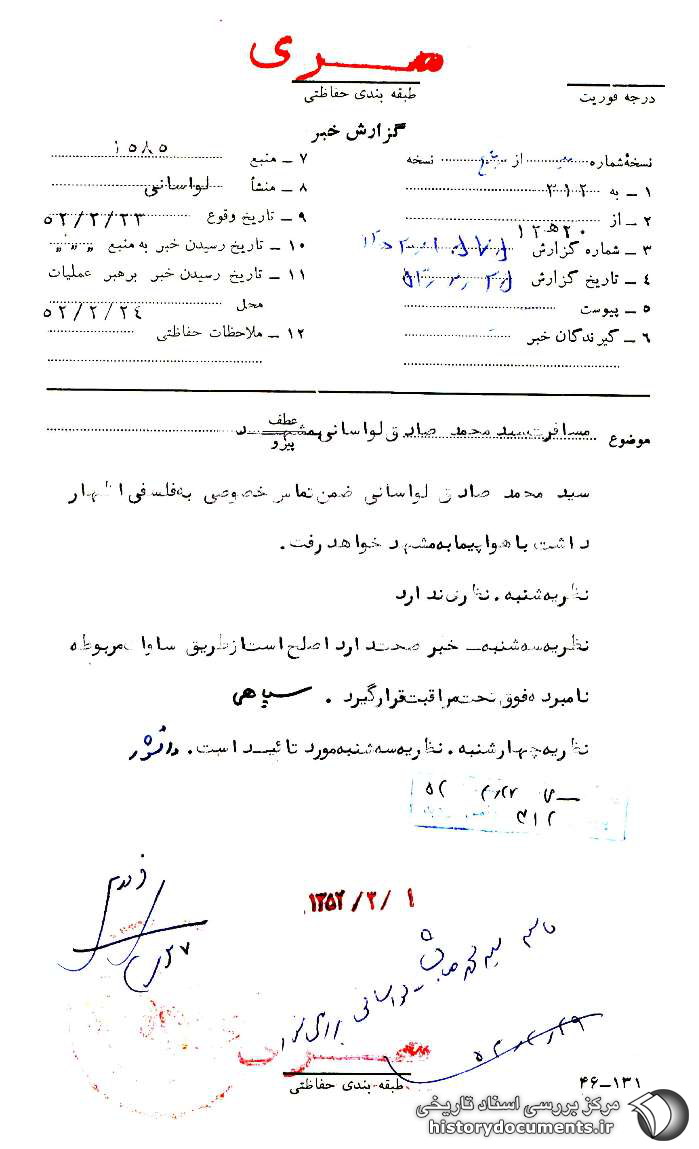 سری
طبقه بندی حفاظتی
درجه فوریت
گزارش خبر
نسخهٔ شماره از نسخه
۱ ـ به ۳۱۲
۲ ـ از ۲۰ھ۱۲
۳ ـ شماره گزارش
۴ ـ تاریخ گزارش
۵ ـ پیوست
۶ ـ گیرندگان خبر
۷ ـ منبع ۱۵۸۵
۸ ـ منشأ لواسانی
۹ ـ تاریخ وقوع ۵۲/۲/۲۳
۱۰ ـ تاریخ رسیدن خبر به منبع " " "
۱۱ ـ تاریخ رسیدن خبر برهبر عملیات
محل ۵۲/۲/۲۴
۱۲ ـ ملاحظات حفاظتی
موضوع مسافرت سید محمد صادق لواسانی بمشهد
عطف
پیرو
سید محمد صادق لواسانی ضمن تماس خصوصی به فلسفی اظهار
داشت با هواپیما به مشهد خواهد رفت .
نظریه شنبه . نظری ندارد
نظریه سه شنبه ـ خبر صحت دارد اصلح است از طریق ساواک مربوطه
نامبرده فوق تحت مراقبت قرار گیرد . سپاهی
نظریه چهارشنبه . نظریه سه شنبه مورد تائید است . دانشور
۳۱۲
۱۳۵۲/۳/۱
سید محمد صادق لواسانی
۵۲/۲/۲۹
سری
طبقه بندی حفاظتی
۴۶-۱۳۱
مرکز بررسی اسناد تاریخی
historydocuments.ir